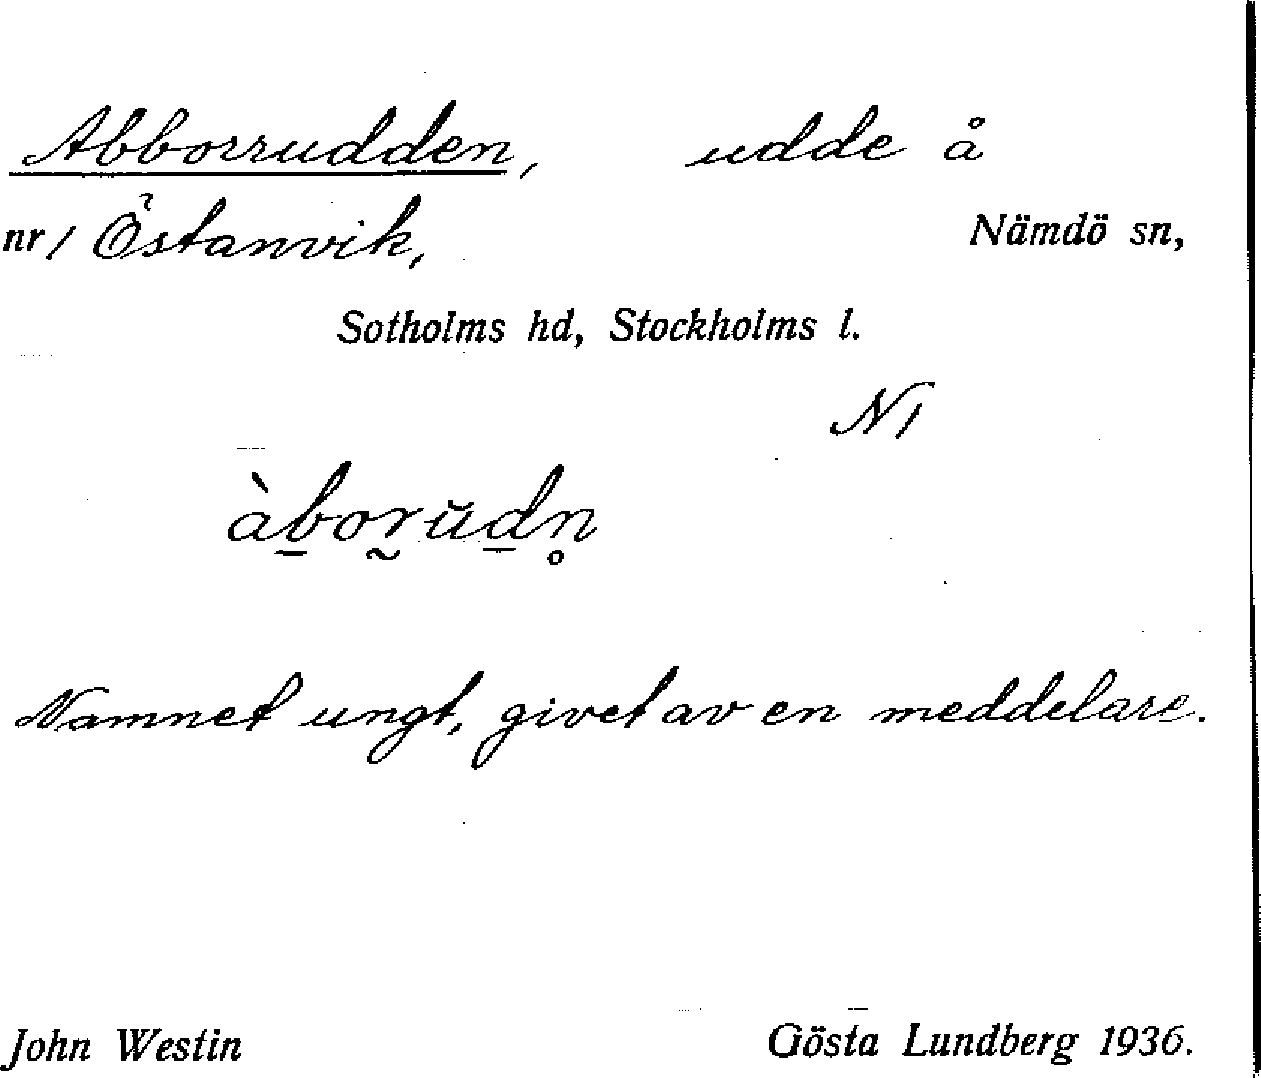 Abborrudden, udde å
nr 1 Östanvik, Nämdö sn,
Sotholms hd, Stockholms l.
N1
àb̲or̰ŭd̲n̥
Namnet ungt, givet av en meddelare.
John Westin Gösta Lundberg 1936.